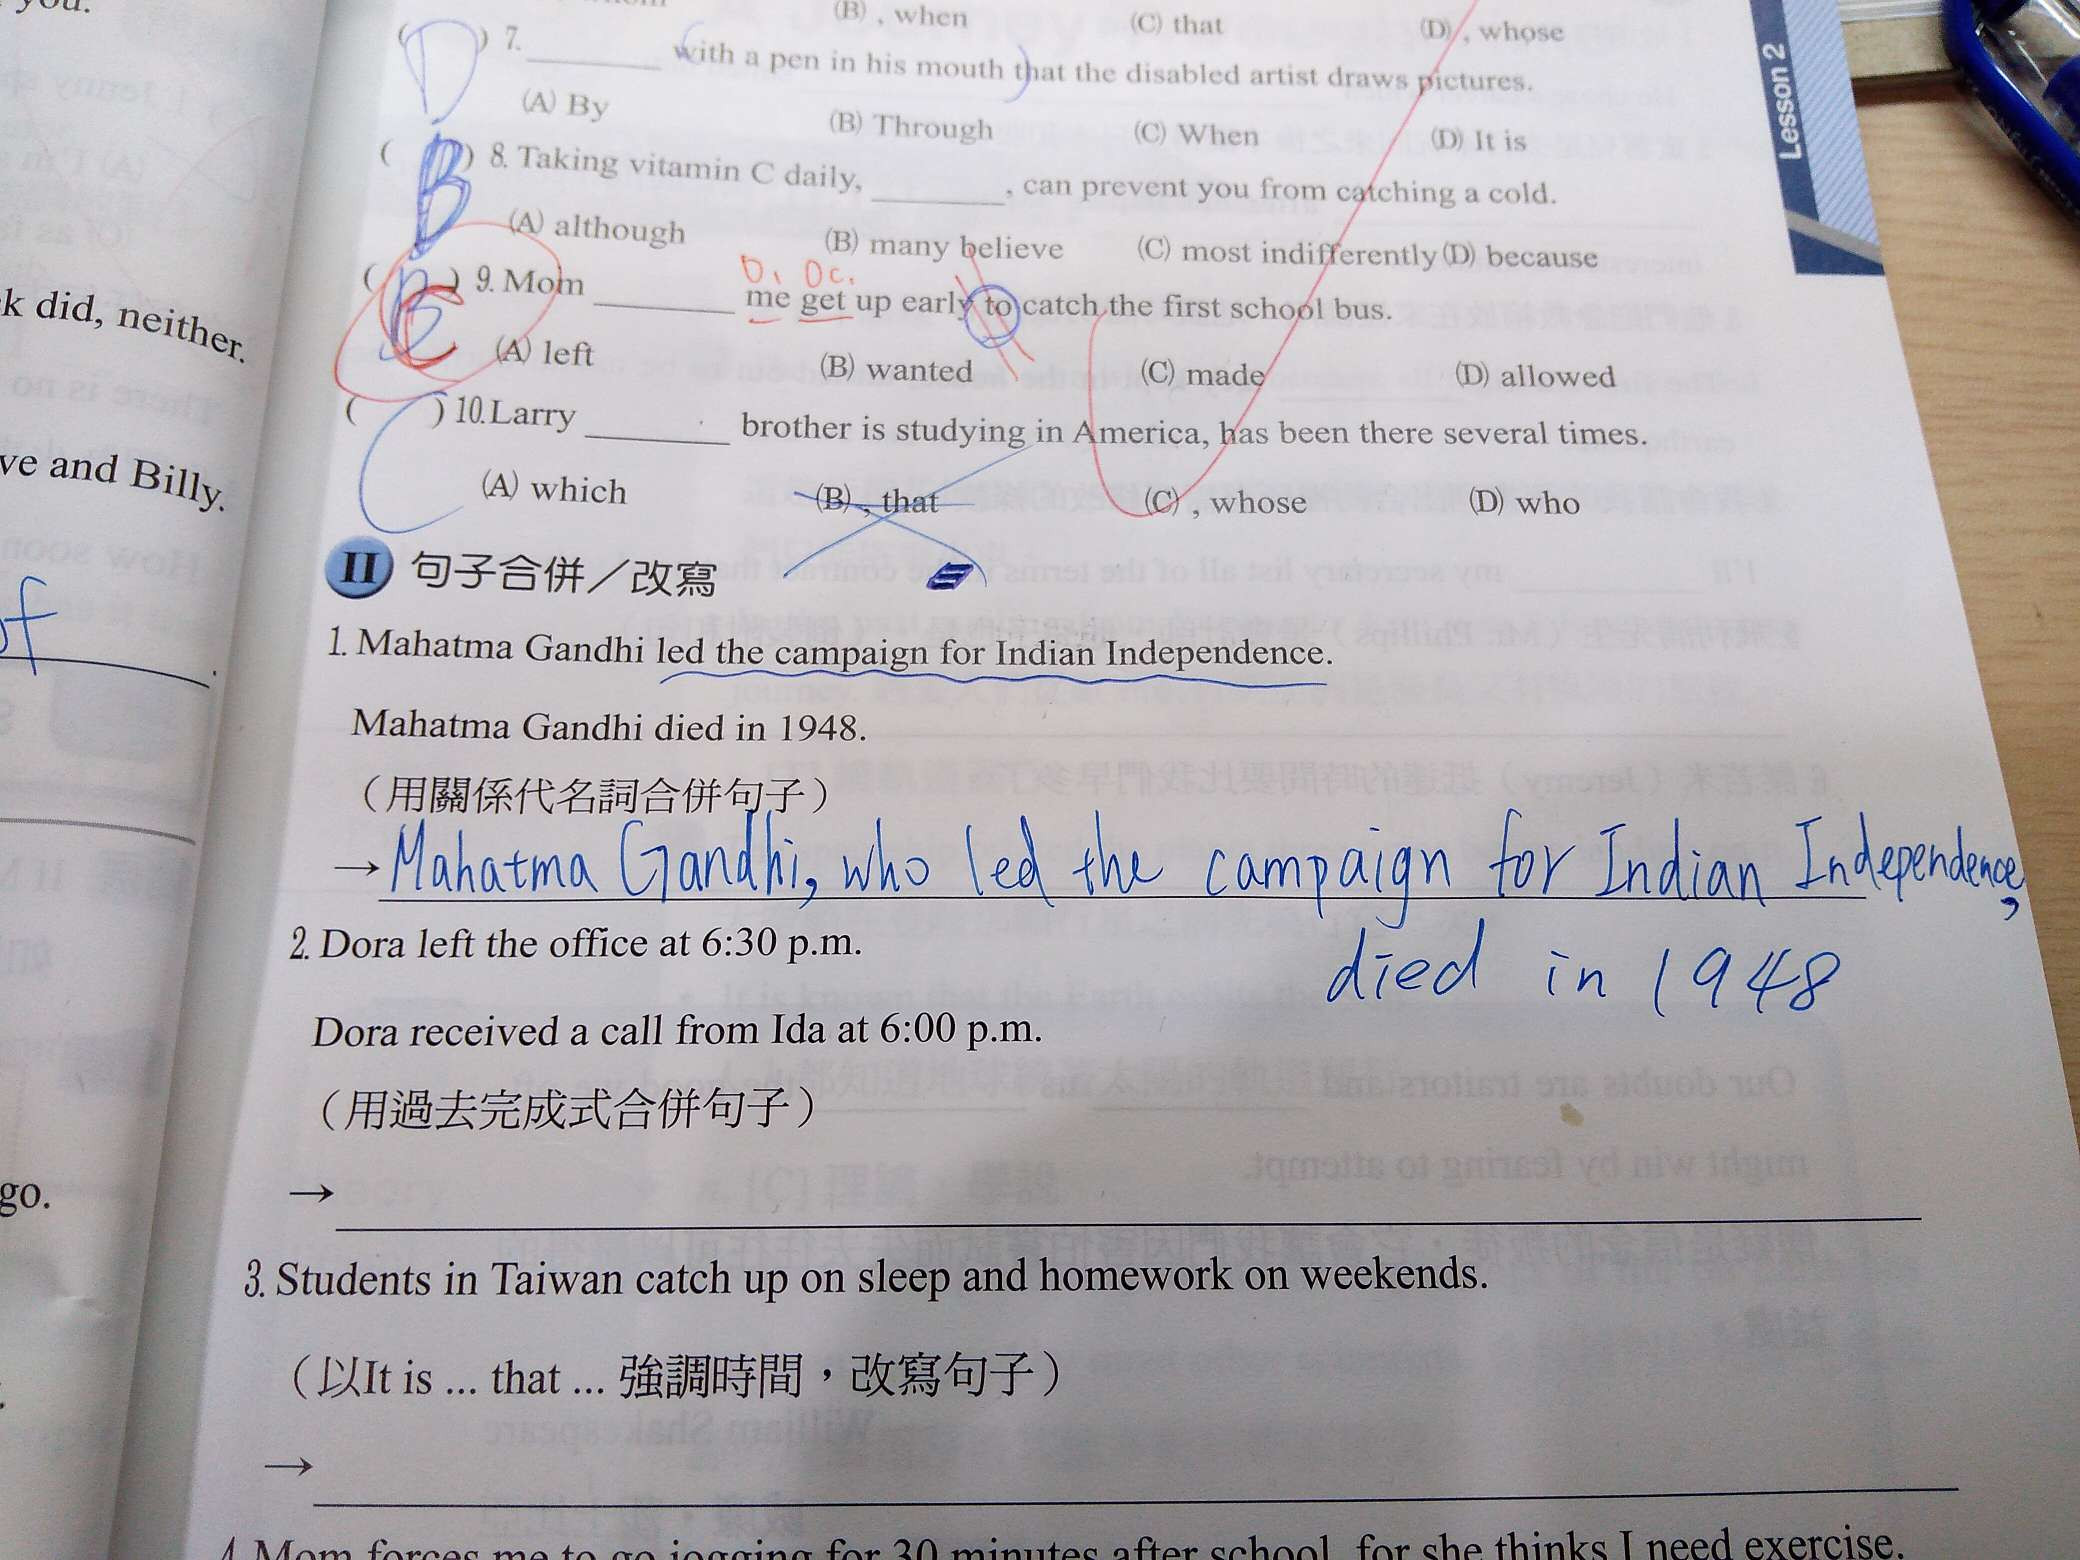 (B) , when (C) that (D) , whose
( D ) 7. ________ with a pen in his mouth that the disabled artist draws pictures.
(A) By (B) Through (C) When (D) It is
( B ) 8. Taking vitamin C daily, ________, can prevent you from catching a cold.
(A) although (B) many believe (C) most indifferently (D) because
O. Oc.
( C ) 9. Mom ________ me get up early to catch the first school bus.
(A) left (B) wanted (C) made (D) allowed
( C ) 10. Larry ________ brother is studying in America, has been there several times.
(A) which (B) , that (C) , whose (D) who
II 句子合併／改寫
1. Mahatma Gandhi led the campaign for Indian Independence.
Mahatma Gandhi died in 1948.
（用關係代名詞合併句子）
→ Mahatma Gandhi, who led the campaign for Indian Independence,
died in 1948
2. Dora left the office at 6:30 p.m.
Dora received a call from Ida at 6:00 p.m.
（用過去完成式合併句子）
→
3. Students in Taiwan catch up on sleep and homework on weekends.
（以It is ... that ... 強調時間，改寫句子）
→
4. Mom forces me to go jogging for 30 minutes after school, for she thinks I need exercise.
Lesson 2
you.
k did, neither.
ve and Billy.
of
go.